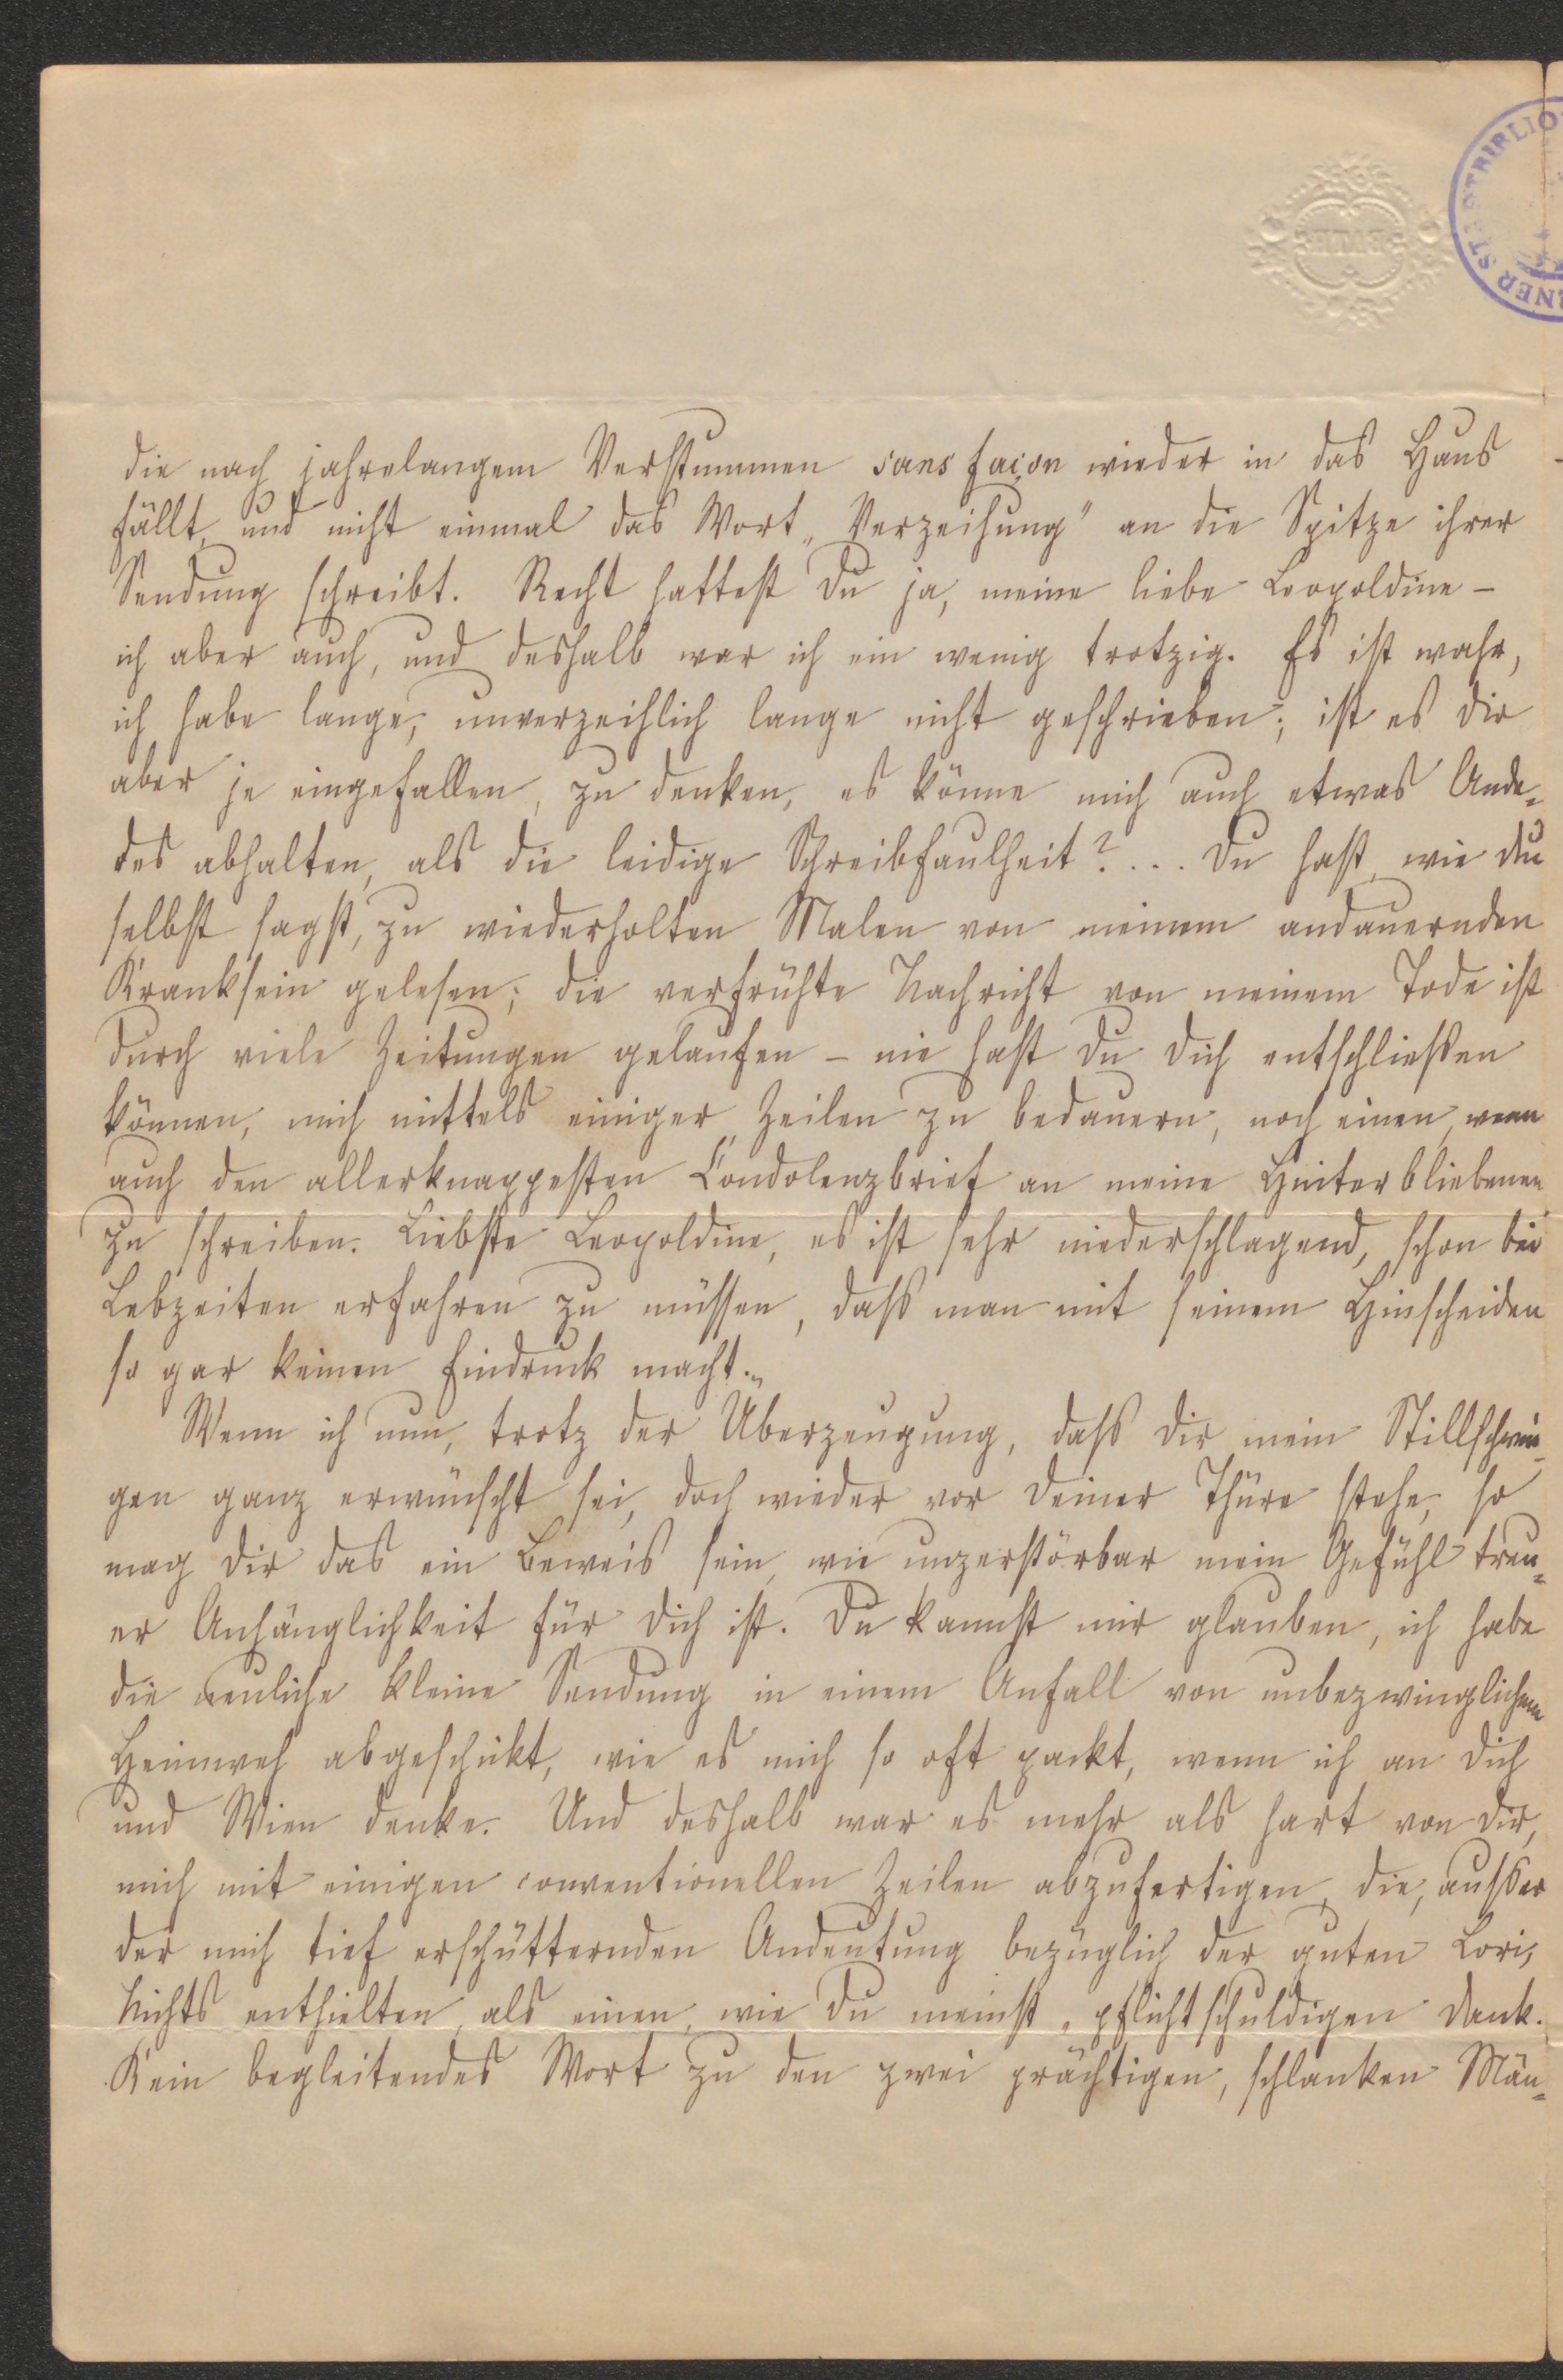 BATH
ENER STADTBIBLIO
die nach jahrelangem Verstummen sans façon wieder in das Haus
fällt, und nicht einmal das Wort „Verzeihung" an die Spitze ihrer
Sendung schreibt. Recht hattest Du ja, meine liebe Leopoldine –
ich aber auch, und deshalb war ich ein wenig trotzig. Es ist wahr,
ich habe lange, unverzeihlich lange nicht geschrieben; ist es Dir
aber je eingefallen, zu denken, es könne mich auch etwas Ande-
des abhalten, als die leidige Schreibfaulheit? ... Du hast, wie Du
selbst sagst, zu wiederholten Malen von meinem andauernden
Kranksein gelesen; die verfrühte Nachricht von meinem Tode ist
durch viele Zeitungen gelaufen – nie hast Du Dich entschließen
können, mich mittels einiger Zeilen zu bedauern, noch einen, wenn
auch den allerknappesten Condolenzbrief an meine Hinterbliebenen
zu schreiben. Liebste Leopoldine, es ist sehr niederschlagend, schon bei
Lebzeiten erfahren zu müssen, daß man mit seinem Hinscheiden
so gar keinen Eindruck macht.
Wenn ich nun, trotz der Überzeugung, daß Dir mein Stillschwei-
gen ganz erwünscht sei, doch wieder vor Deiner Thüre stehe, so
mag Dir das ein Beweis sein, wie unzerstörbar mein Gefühl treu-
er Anhänglichkeit für Dich ist. Du kannst mir glauben, ich habe
die neuliche kleine Sendung in einem Anfall von unbezwinglichem
Heimweh abgeschickt, wie es mich so oft packt, wenn ich an Dich
und Wien denke. Und deshalb war es mehr als hart von Dir,
mich mit einigen conventionellen Zeilen abzufertigen, die, außer
der mich tief erschütternden Andeutung bezüglich der guten Lori,
Nichts enthielten, als einen, wie Du meinst, pflichtschuldigen Dank.
Kein begleitendes Wort zu den zwei prächtigen, schlanken Män-